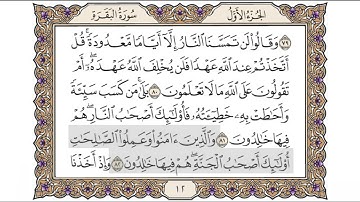 الجزء الأول
سورة البقرة
٧٩ وَقَالُوا۟ لَن تَمَسَّنَا ٱلنَّارُ إِلَّآ أَيَّامًا مَّعْدُودَةً ۚ قُلْ
أَتَّخَذْتُمْ عِندَ ٱللَّهِ عَهْدًا فَلَن يُخْلِفَ ٱللَّهُ عَهْدَهُۥٓ ۖ أَمْ
تَقُولُونَ عَلَى ٱللَّهِ مَا لَا تَعْلَمُونَ ٨٠ بَلَىٰ مَن كَسَبَ سَيِّئَةً
وَأَحَٰطَتْ بِهِۦ خَطِيٓـَٔتُهُۥ فَأُو۟لَٰٓئِكَ أَصْحَٰبُ ٱلنَّارِ ۖ هُمْ
فِيهَا خَٰلِدُونَ ٨١ وَٱلَّذِينَ ءَامَنُوا۟ وَعَمِلُوا۟ ٱلصَّٰلِحَٰتِ
أُو۟لَٰٓئِكَ أَصْحَٰبُ ٱلْجَنَّةِ ۖ هُمْ فِيهَا خَٰلِدُونَ ٨٢ وَإِذْ أَخَذْنَا
١٢